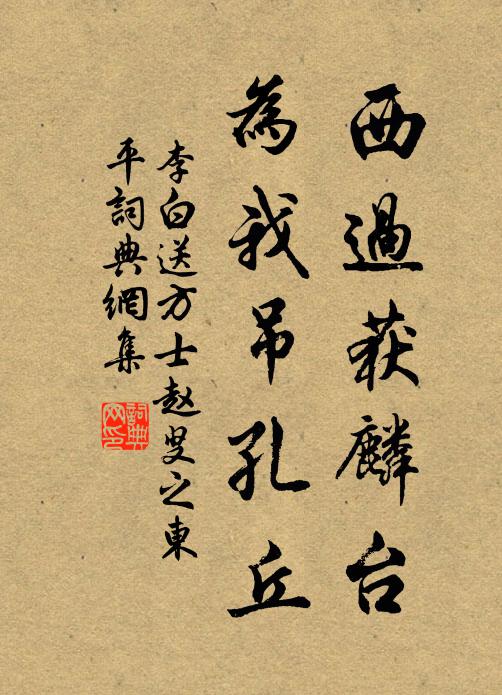 西過获麟台
為我吊孔丘
李白送方士赵叟之東
平詞典網集
詞典网印